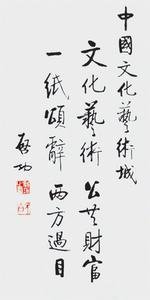 中國文化藝術城
文化藝術公共財富
一紙頌辭西方過目
啟功